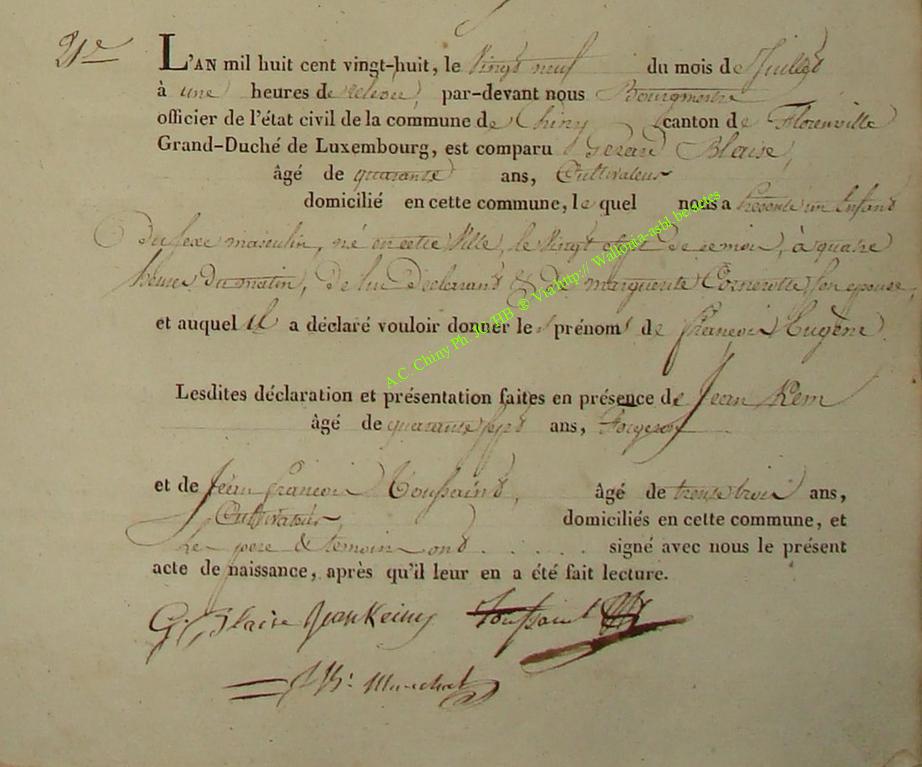 21e L'AN mil huit cent vingt-huit, le Vingt neuf du mois de Juillet
à une heures de relevé, par-devant nous Bourgmestre
officier de l'état civil de la commune de Chiny canton de Florenville
Grand-Duché de Luxembourg, est comparu Gerard Blaise,
âgé de quarante ans, Cultivateur
domicilié en cette commune, lequel nous a Présenté un Enfant
du sexe masculin, né en cette Ville, le Vingt de ce mois, à quatre
heures du matin, de lui déclarant & de marguerite son epouse,
et auquel il a déclaré vouloir donner les prénoms de françois Eugène
Lesdites déclaration et présentation faites en présence de Jean
âgé de quarante sept ans, Forgeron
et de Jean françois Toussaint, âgé de trente trois ans,
Cultivateur, domiciliés en cette commune, et
Le pere & temoin ont . . . . . signé avec nous le présent
acte de naissance, après qu'il leur en a été fait lecture.
G. Blaise Jean Toussaint
A.C. Chiny Ph. JC/HB ® Via http:// Wallonia-asbl.be/actes